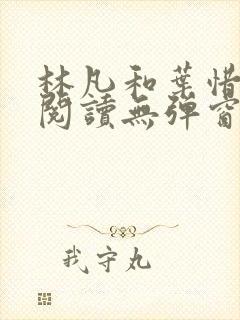 林凡和葉惜
閱讀無彈窗
我守丸